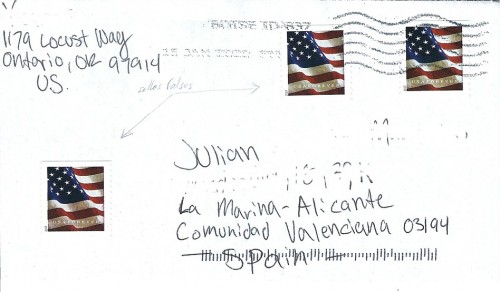 1179 Locust Way
Ontario, OR 97914
U.S.
BOISE ID 837
sellos falsos
USA FOREVER
USA FOREVER
USA FOREVER
Julian
La Marina-Alicante
Comunidad Valenciana 03194
Spain